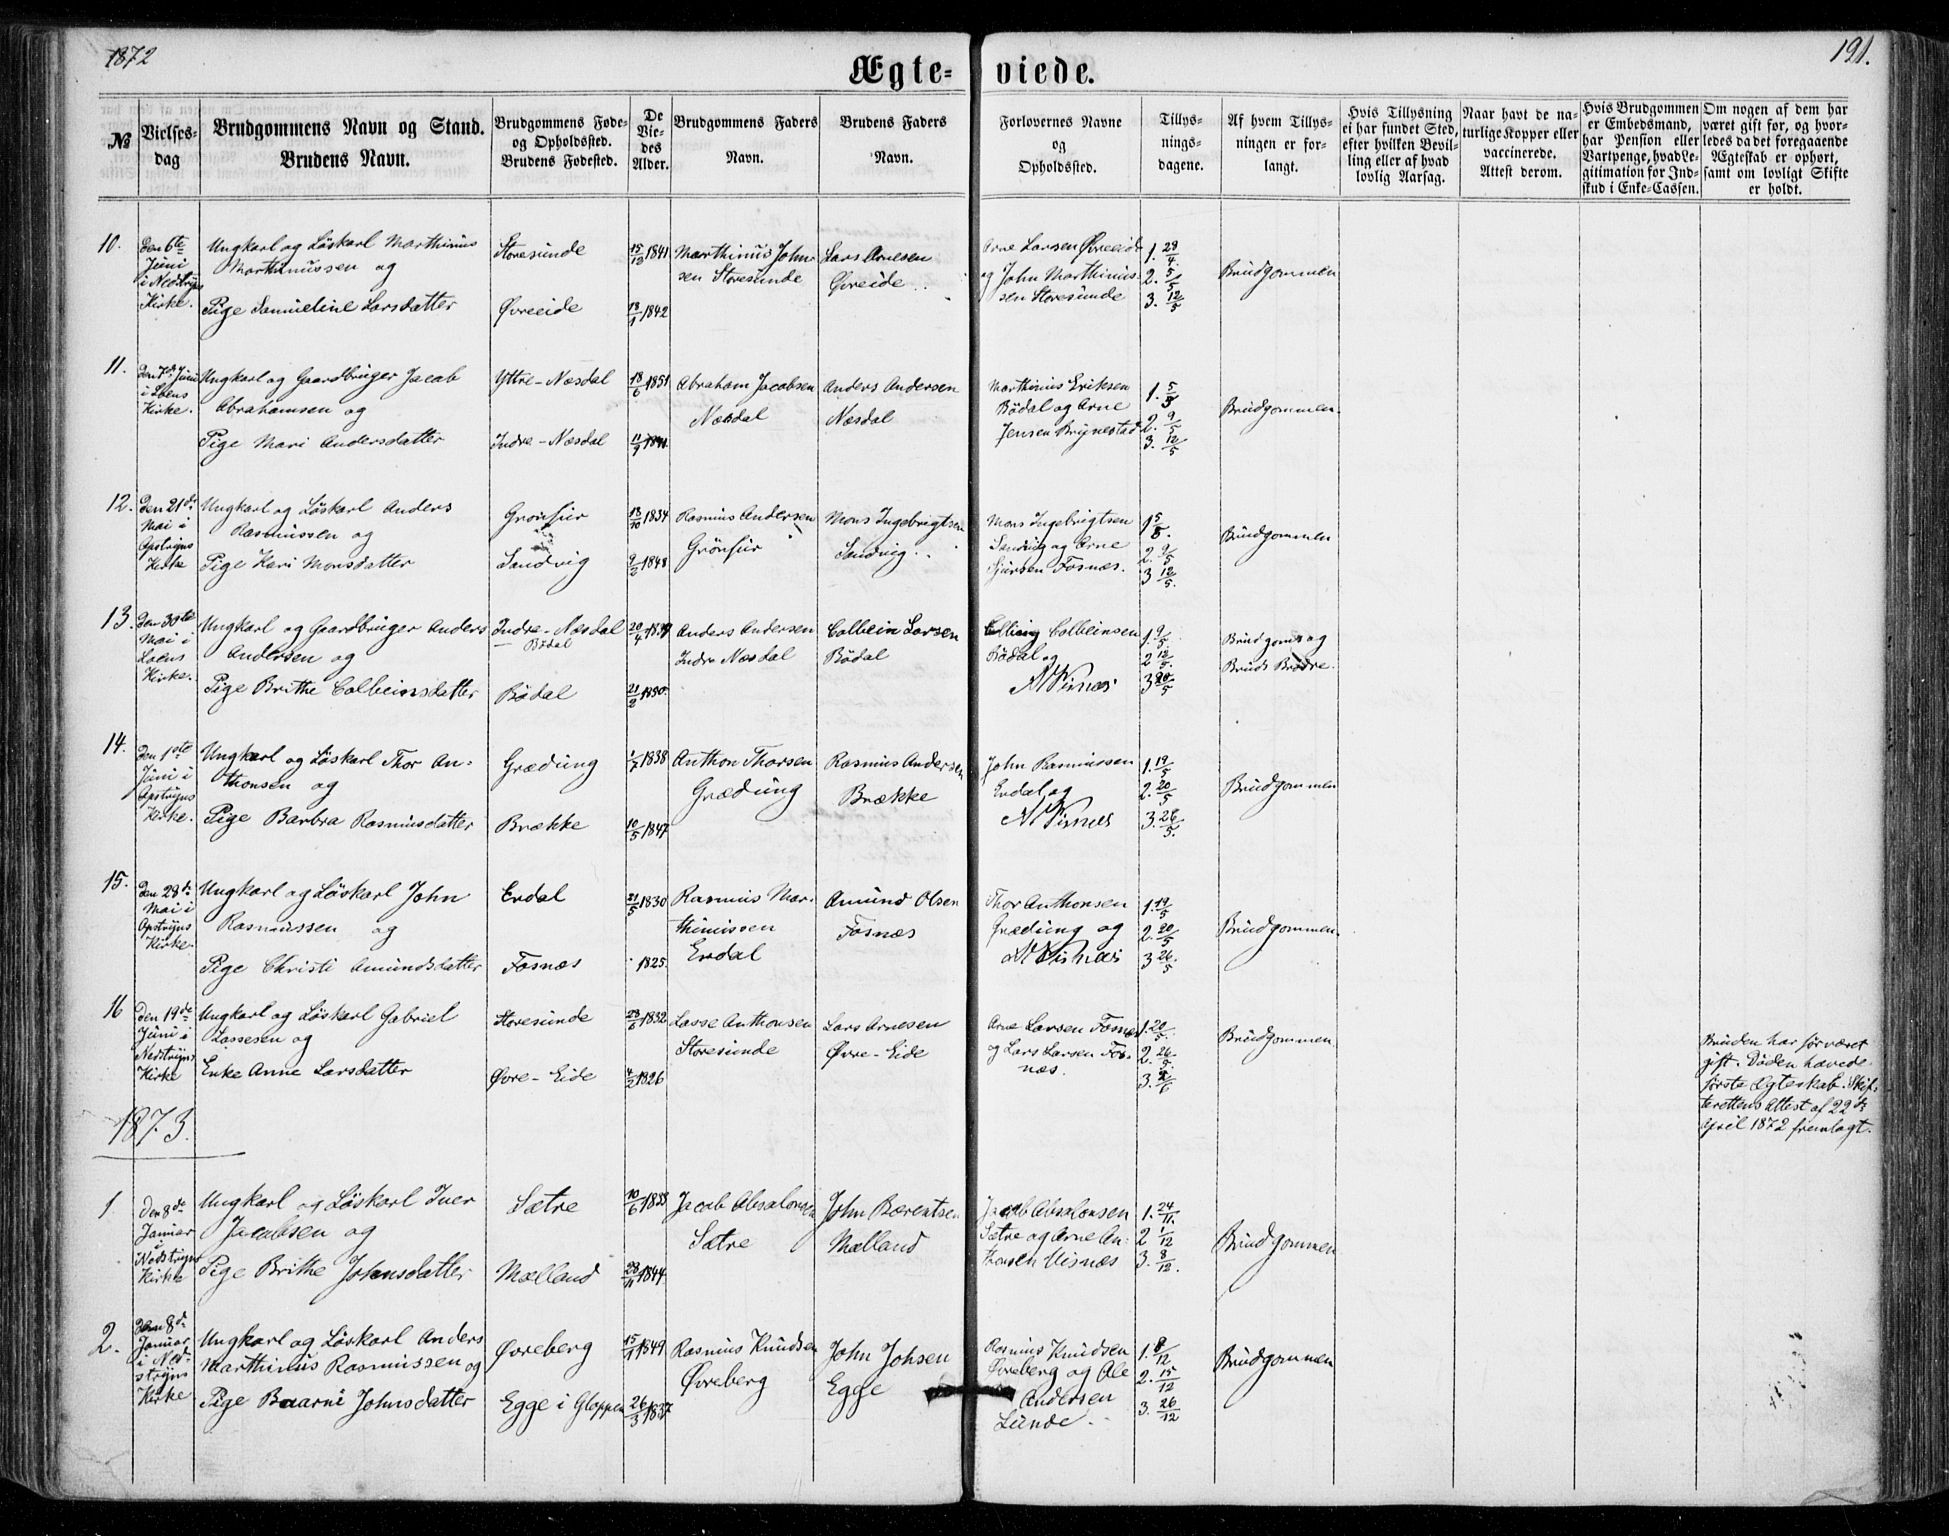 1872
Ægte-viede.
191.
№
Vielses-dag
Brudgommens Navn og Stand.
Brudens Navn.
Brudgommens Føde-
og Opholdssted.
Brudens Fødested.
De
Vie-
des
Alder.
Brudgommens Faders
Navn.
Brudens Faders
Navn.
Forlovernes Navne
og
Opholdssted.
Tillys-
nings-
dagene.
Af hvem Tillys-
ningen er for-
langt.
Hvis Tillysning
ei har fundet Sted,
efter hvilken Bevil-
ling eller af hvad
lovlig Aarsag.
Naar havt de na-
turlige Kopper eller
vaccinerede.
Attest derom.
Hvis Brudgommen
er Embedsmand,
har Pension eller
Vartpenge, hvad Le-
gitimation for Ind-
skud i Enke-Cassen.
Om nogen af dem har
været gift før, og hvor-
ledes da det foregaaende
Ægteskab er ophørt,
samt om lovligt Skifte
er holdt.
10.
Den 6te
Juni
i Nedstryns
Kirke.
Ungkarl og Löskarl Marthinus
Marthinussen og
Pige Samueline Larsdatter
Storesunde
Øvreeide
15/12 1841
13/1 1842
Marthinus John-
sen Storesunde
Lars Arnesen
Øvreide
Arne Larsen Øvreeide
og John Marthinus-
sen Storesunde
1. 28/4
2. 5/5
3. 12/5
Brudgommen
11.
Den 7de Juni
i Loens
Kirke.
Ungkarl og Gaardbruger Jacob
Abrahamsen og
Pige Mari Andersdatter
Yttre-Næsdal
Indre-Næsdal
18/6 1851
Abraham Jacobsen
Næsdal
Anders Andersen
Næsdal
Marthinus Eriksen
Bödal og Arne
Jensen Brynestad
1. 5/5
2. 9/5
3. 12/5
Brudgommen
12.
Den 21de
Mai i
Opstryns
Kirke
Ungkarl og Löskarl Anders
Rasmussen og
Pige Kari Monsdatter
Grönfur
Sandvig
13/10 1834
9/2 1848
Rasmus Andersen
Grönfur
Mons Ingebrigtsen
Sandvig
Mons Ingebrigtsen
Sandvig og Arne
Sjursen Fosnæs.
1 5/5.
2. 9/5
3 12/5.
Brudgommen
13.
Den 30te
Mai i
Loens
Kirke.
Ungkarl og Gaardbruger Anders
Andersen og
Pige Brithe Colbeinsdatter
Indre-Næsdal
Bödal
Bödal
21/2 1850.
Anders Andersen
Indre Næsdal
Colbein Larsen
Bödal
Colbeinsen
Bödal og
N Visnæs
1. 9/5
2 12/5.
3 20/5
Brudgoms og
Bruds Brødre.
14.
Den 1ste
Juni i
Opstryns
Kirke.
Ungkarl og Löskarl Thor An-
thonsen og
Pige Barbra Rasmusdatter
Grædung
Brække
1/7 1838
10/5 1847
Anthon Thorsen
Grædung
Rasmus Andersen
Brække
John Rasmussen
Erdal og
N Visnæs
1. 19/5
2. 20/5
3. 26/5.
Brudgommen
15.
Den 28de
Mai i
Opstryns
Kirke
Ungkarl og Löskarl John
Rasmussen og
Pige Christi Amundsdatter
Erdal
Fosnæs
21/5 1830
1825
Rasmus Mar-
thinussen
Erdal
Amund Olsen
Fosnæs
Thor Anthonsen
Grædung og
N Visnæs
1. 19/5
2. 20/5
3 26/5
Brudgommen.
16
Den 19de
Juni i
Nedstryns
Kirke
Ungkarl og Löskarl Gabriel
Lassesen og
Enke Anne Larsdatter
Storesunde
Øvre-Eide
28/6 1832
4/2 1826
Lasse Anthonsen
Storesunde
Lars Arnesen
Øvre-Eide
Arne Larsen Fosnæs
og Lars Larsen Fos-
næs.
1. 20/5.
2. 26/5
3. 2/6
Brudgommen
Bruden har før været
gift. Döden hævede
første Ægteskab. Skif-
terettens Attest af 22de
April 1872 fremlagt.
1873.
1.
Den 8de
Januar
i
Nedstryns
Kirke
Ungkarl og Löskarl Iver
Jacobsen og
Pige Brithe Johnsdatter
Sætre
Mælland
10/6 1838
28/11 1844
Jacob Absalonsen
Sætre
John Bærentsen
Mælland
Jacob Absalonsen
Sætre og Arne An-
thonsen Visnæs
1. 24/11.
2 1/12
3. 8/12.
Brudgommen
2.
Den 8de
Januar
i Ned-
stryns
Kirke
Ungkarl og Löskarl Anders
Marthinus Rasmussen og
Pige Baarni Johnsdatter
Øvreberg
Egge i Gloppen
15/11 1849
26/3 1837
Rasmus Knudsen
Øvreberg
John Johsen
Egge
Rasmus Knudsen
Øvreberg og Ole
Andersen
Lunde.
1. 8/12
2. 15/12
3. 26/12
Brudgommen